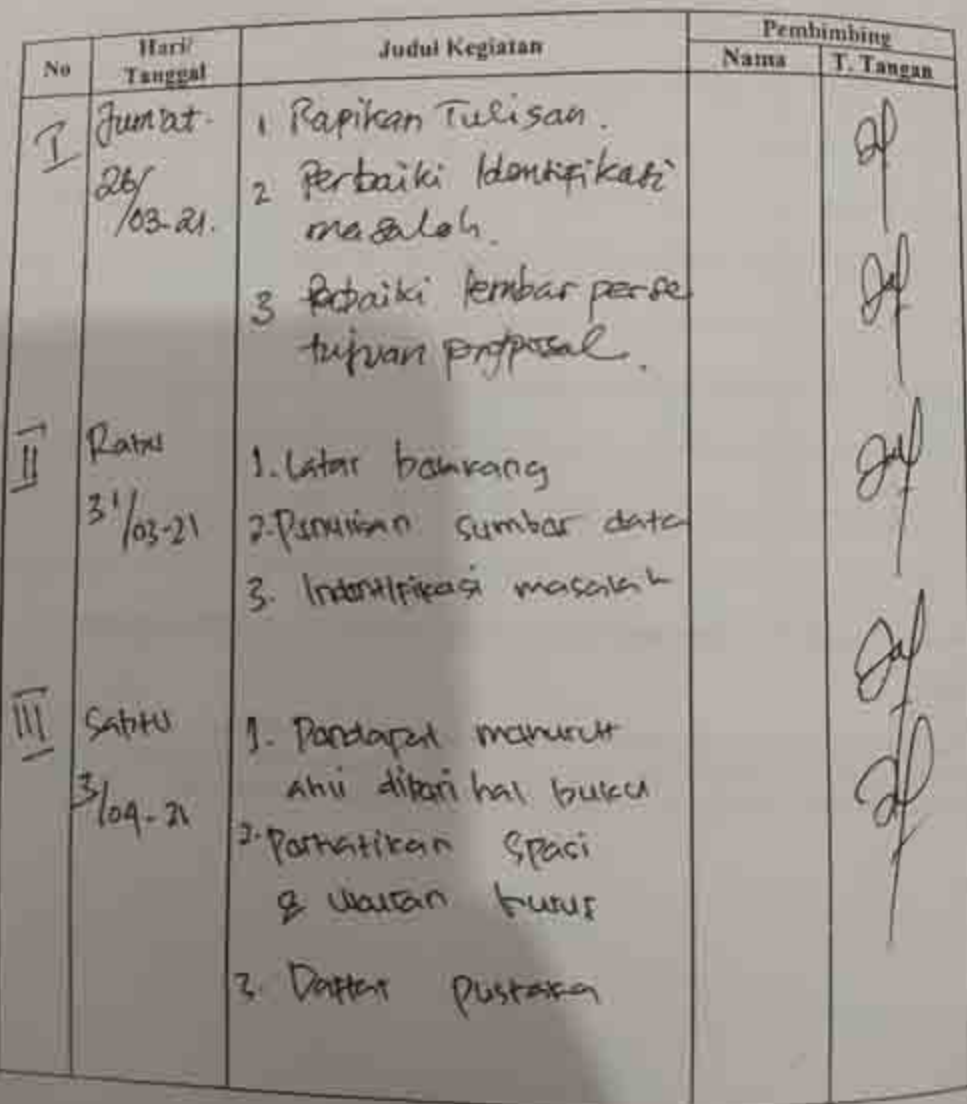 No Hari/ Tanggal Judul Kegiatan Pembimbing
Nama T. Tangan
I Jum'at. 1 Rapikan Tulisan.
26/03-21. 2 Perbaiki Identifikasi
masalah.
3 Perbaiki lembar perse
tujuan proposal.
II Rabu 1. Latar belakang
31/03-21 2. Penulisan sumber data
3. Indentifikasi masalah
III Sabtu 1. Pendapat menurut
3/04-21 ahli diberi hal buku
2. Perhatikan spasi
& ukuran huruf
3. Daftar pustaka